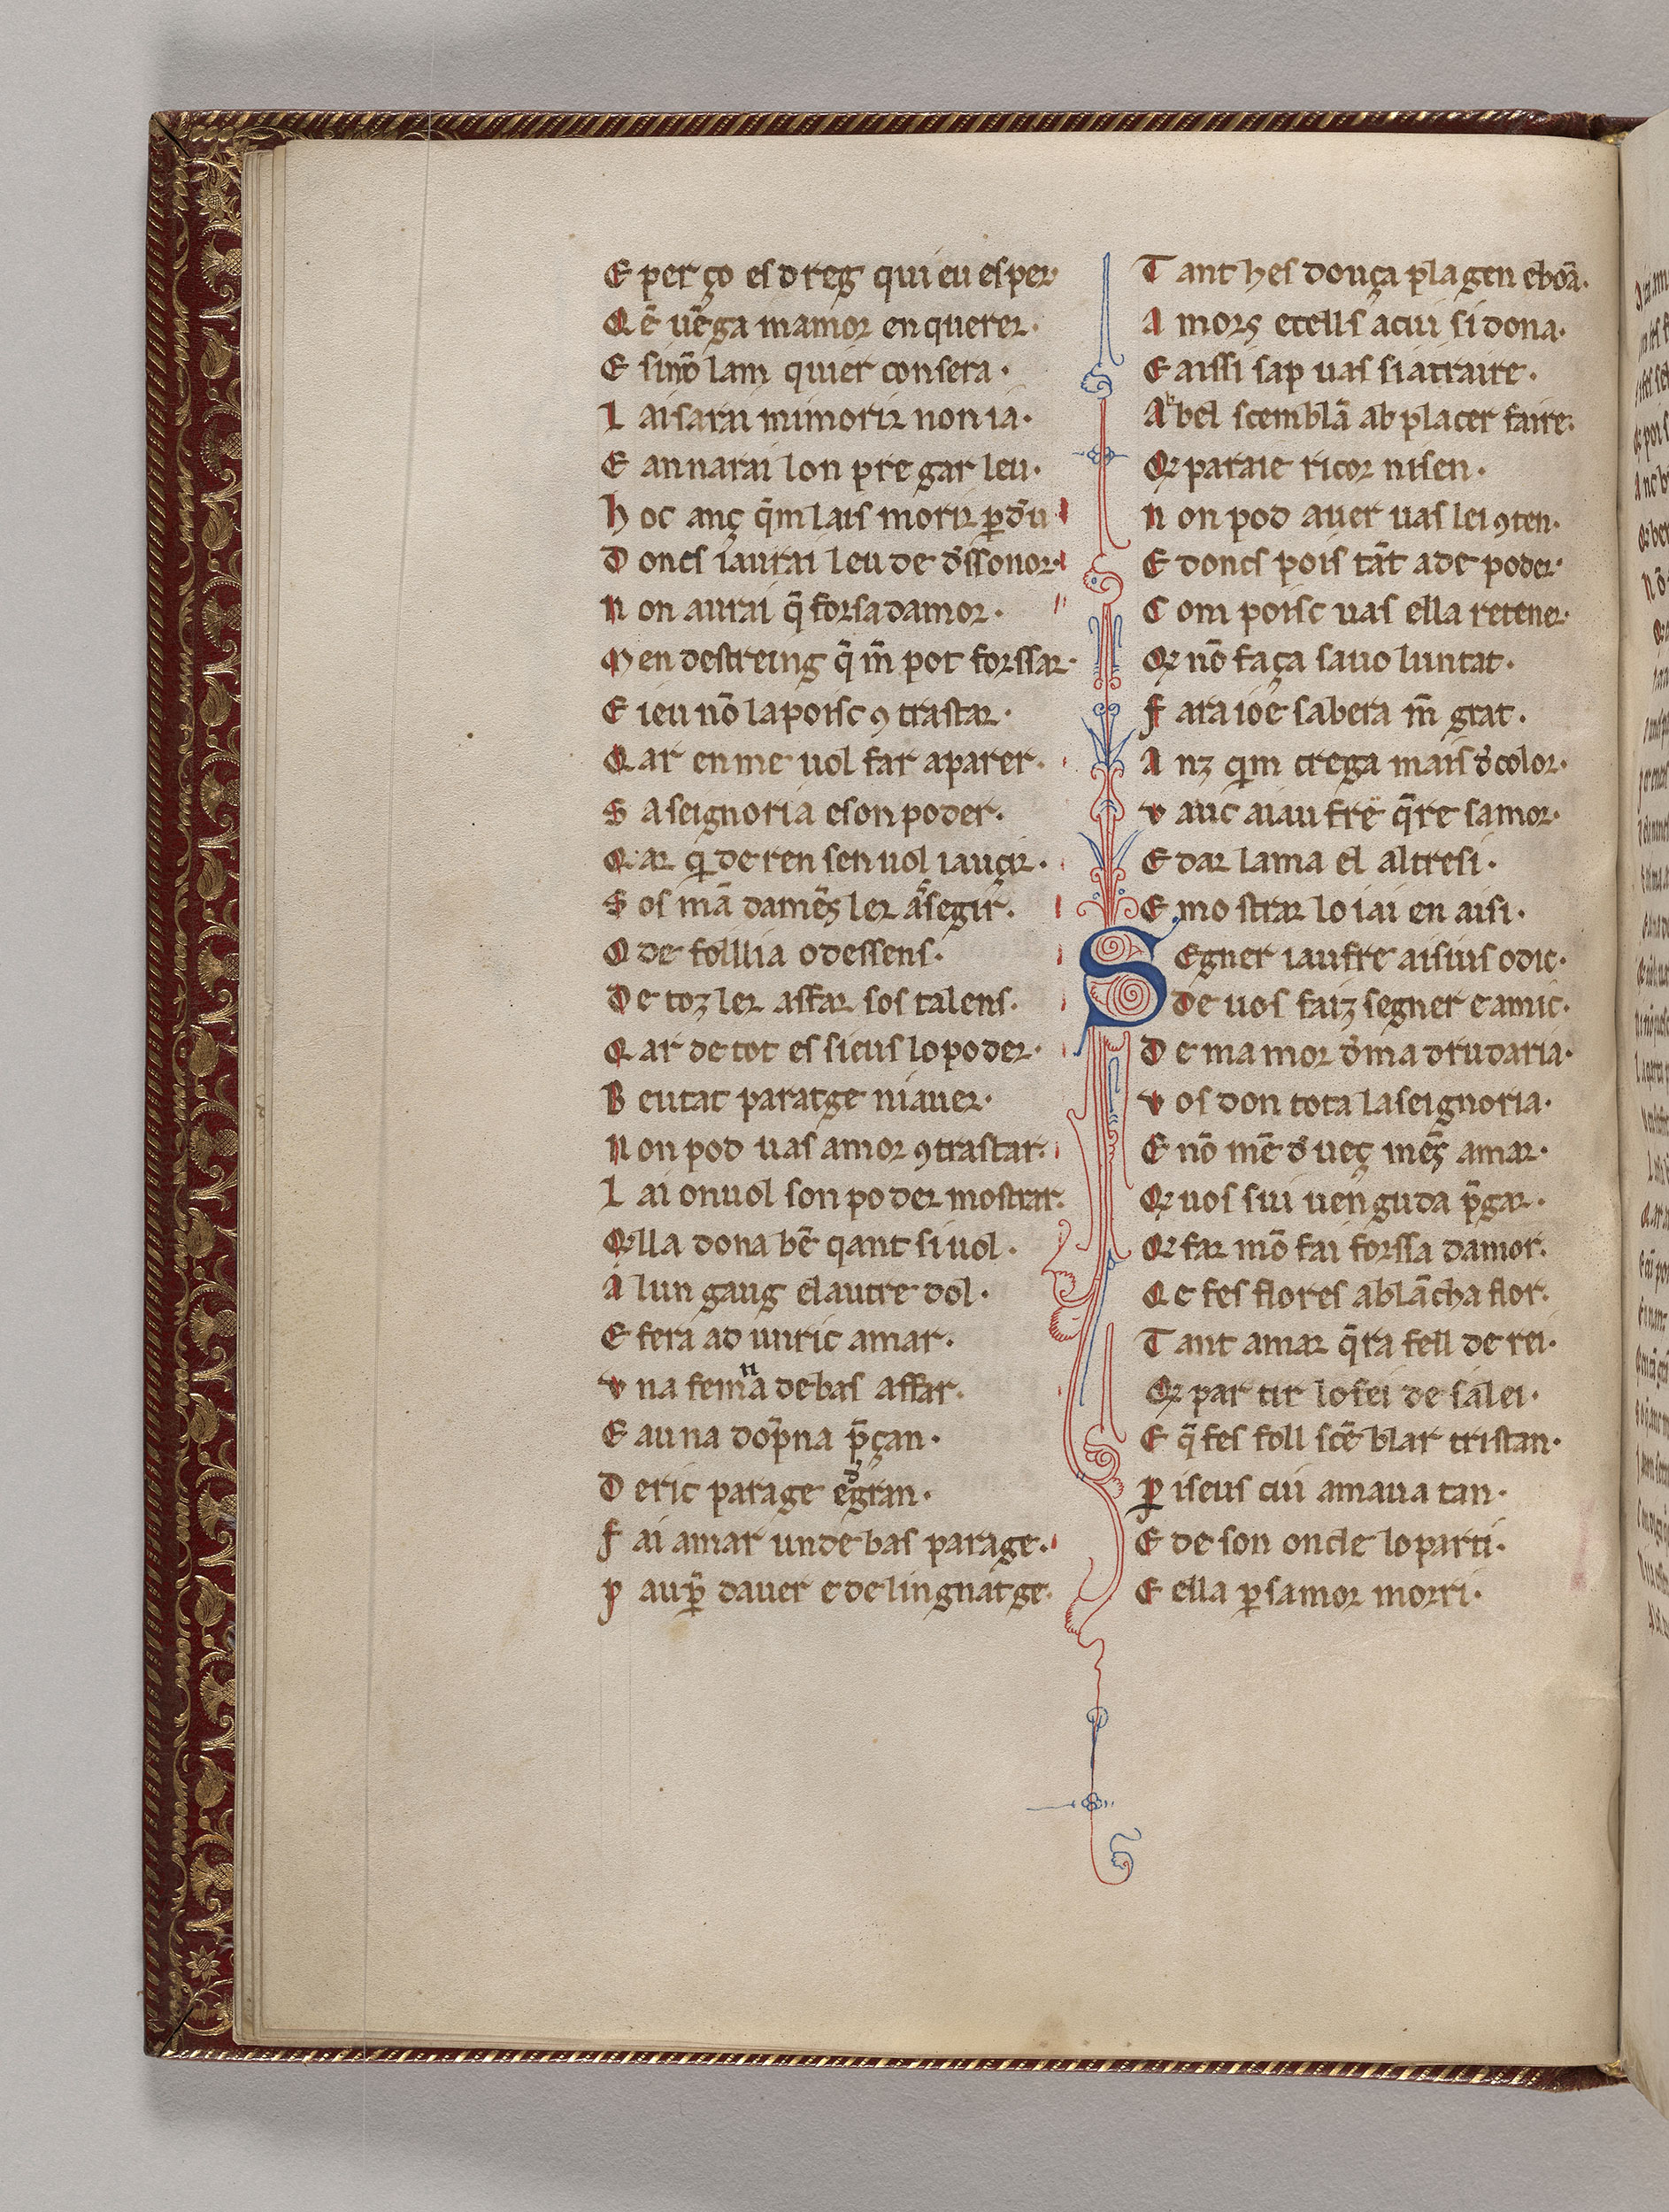 E per ço es dreg qui eu esper
Qē uēga mamor enquerer·
E sinō lam quier consera·
L aisarai mi morir non ia·
E annarai lon pregar leu·
h oc anç q̄m lais morir ꝑdeu
D oncs iaurai leu de dissonor·
N on aurai q̄ forsa damor·
M en destreing q̄ m̄ pot forssar·
E ieu nō la poisc ꝯtrastar·
Q ar en me uol far aparer·
S a seignoria e son poder·
Q ar qi de ren sen uol iauçir·
S os mā damēs ler a segir·
O de follia o dessens·
D e toz ler affar sos talens·
Q ar de tot es sieus lo poder·
B eutat paratge ni auer·
N on pod uas amor ꝯtrastar·
L ai on uol son poder mostrar·
Qella dona bē qant si uol·
A lun gaug el autre dol·
E fera ad un ric amar·
V na femna de bas affar·
E a una dopna p̄çan·
D e ric parage e gran·
F ai amar un de bas parage·
P aup̄ dauer e de lingnatge·
T ant hes douça plagen e bōa·
A mors et ells a cui si dona·
E aissi sap uas si atraire·
Ab bel scemblā ab placer faire·
Qe paraie ricor ni sen·
N on pod auer uas lei ꝯten·
E doncs pois tāt a de poder·
C om poisc uas ella retener·
Qe nō faça sa uoluntat·
F ara ioe sabera m̄ grat·
A nz qim crega mais de color·
V auc a iaufre q̄re samor·
E dar lama el altresi·
E mostrar lo iai en aisi·
S Egner iaufre aisius o dic·
de uos faiz segner e amic·
D e mamor de ma drudaria·
V os don tota la seignoria·
E nō mē deueç mēs amar·
Qe uos sui uenguda p̄gar·
Qe far mō fai forssa damor·
Qe fes flores a blācha flor·
T ant amar q̄ra fell de rei·
Qe partir lo fei de sa lei·
E q̄ fes foll scēblar tristan·
ꝑ iseus cui amaua tan·
E de son oncle lo parti·
E ella ꝑ samor morri·